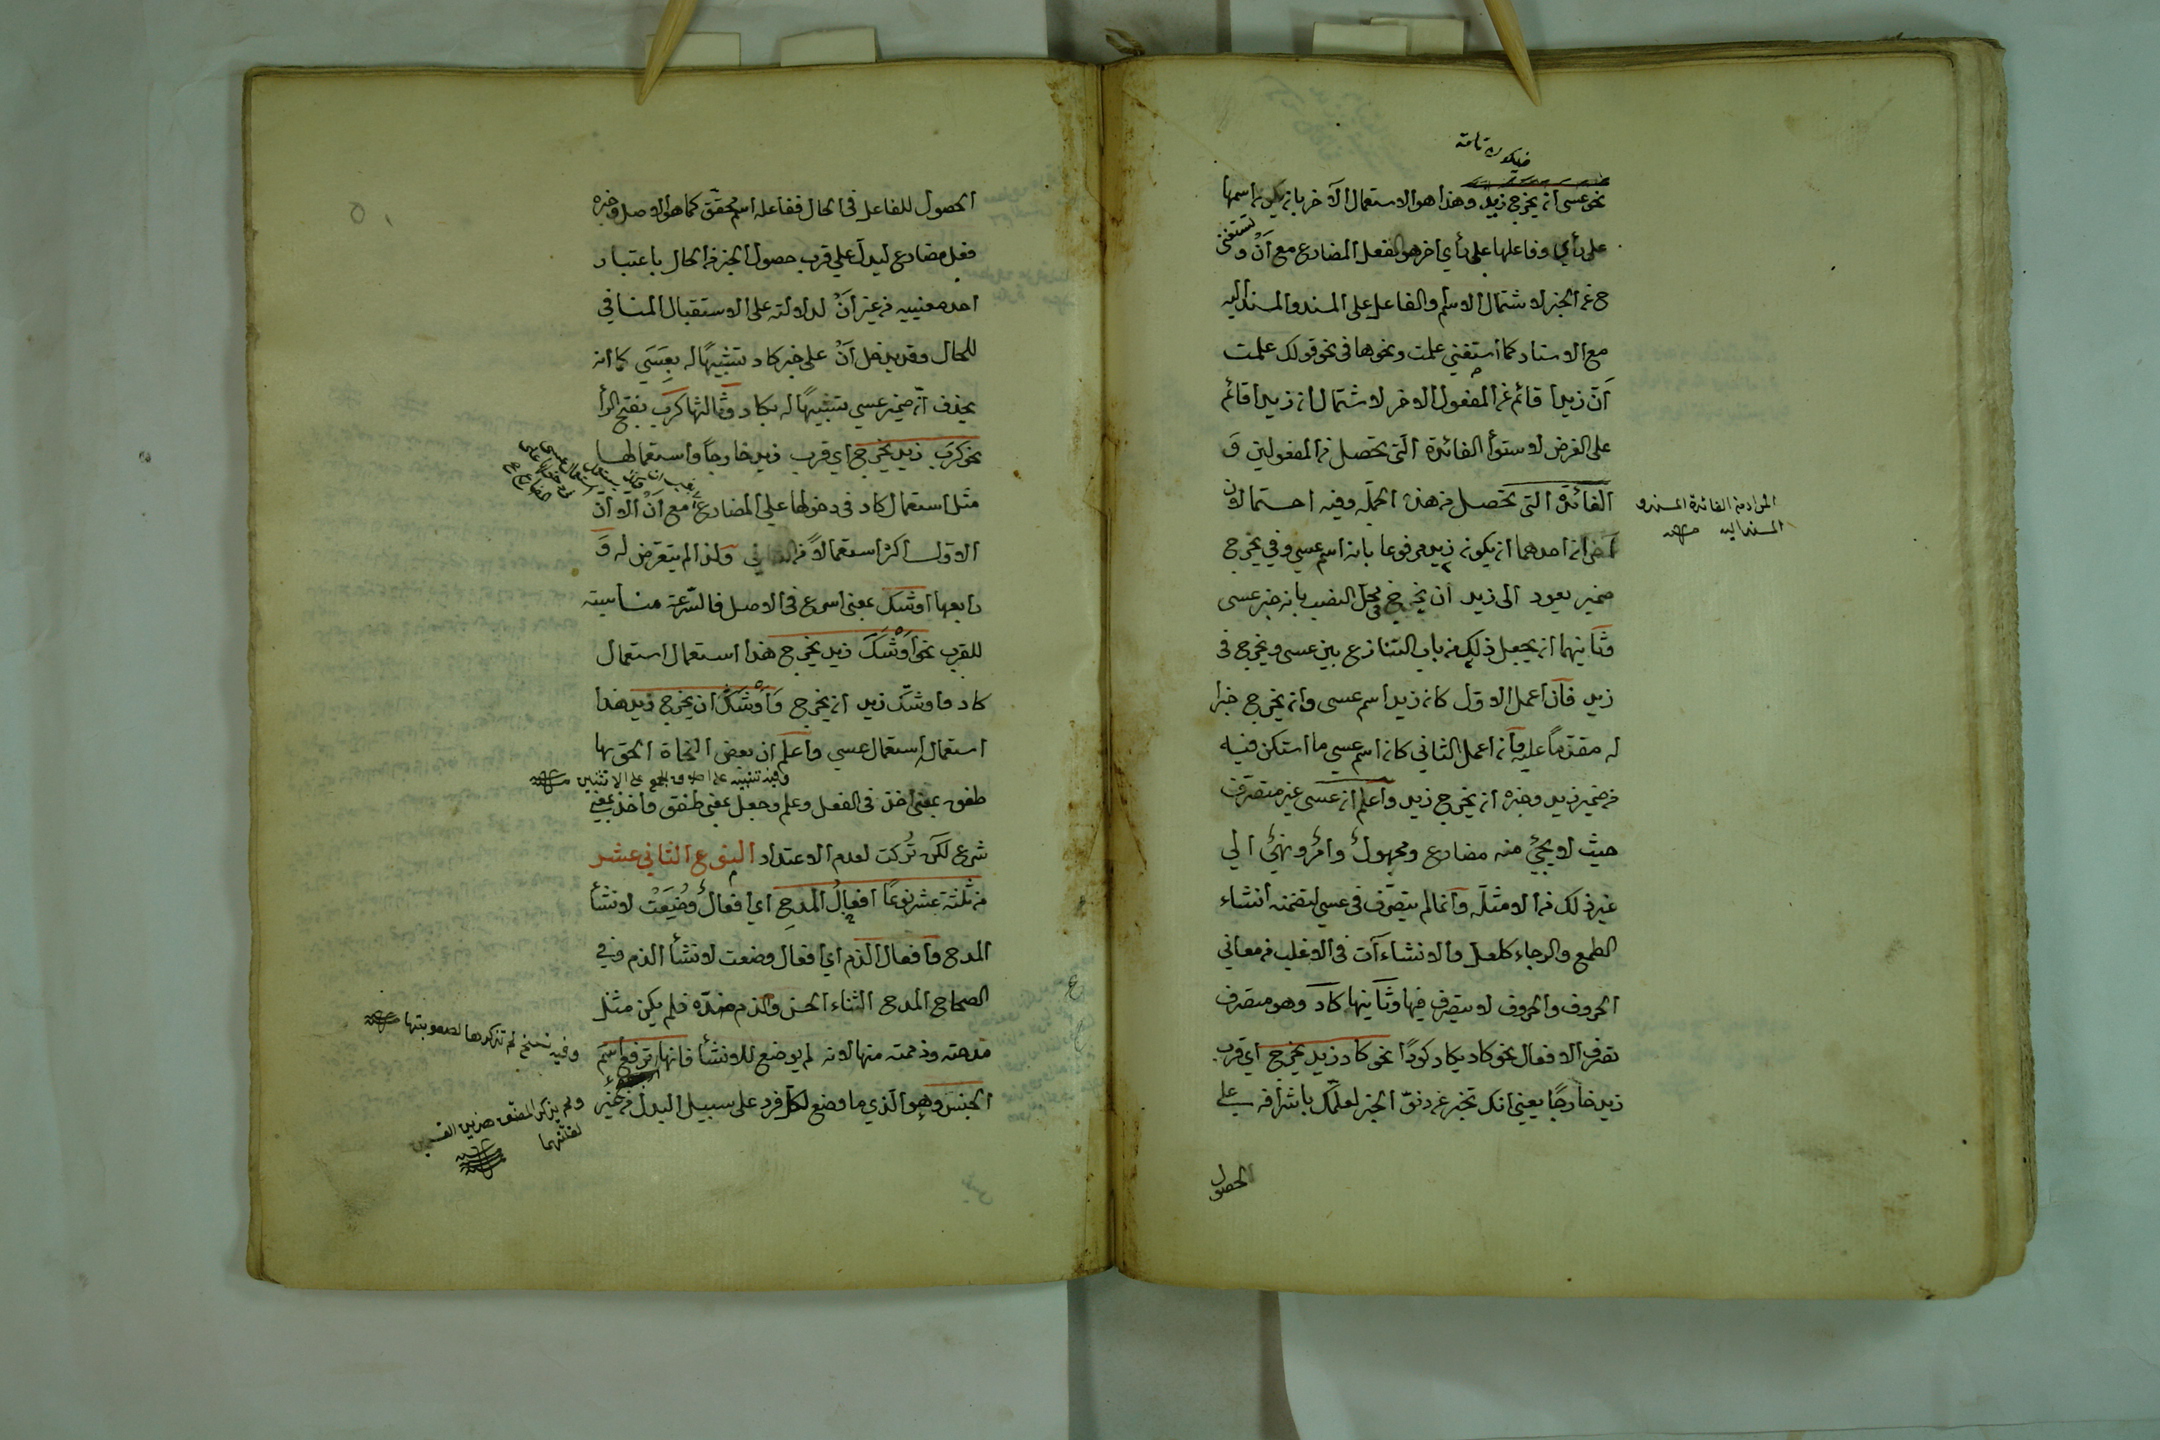 فيكون تامة
نحو عسى ان يخرج زيد وهذا هو الاستعمال الآخر بان يكون اسمها
على رأي وفاعلها على رأي اخر هو الفعل المضارع مع أنْ وتستغني
ح عن الخبر لاشتمال الاسم والفاعل على المسند والمسند اليه
مع الاسناد كما استغنى علمت ونحوها في نحو قولك علمت
أنّ زيدا قائم عن المفعول الاخر لاشتمال ان زيدا قائم
على الغرض لاستوأ الفائدة الّتى تحصل من المفعولين وَ
الفائدة التى تحصل من هذه الجملة وفيه احتمالان
المراد من الفائدة المسند و
المسند اليه منه
آخران احدهما ان يكون زيد مرفوعا بانه اسم عسى وفي يخرج
ضمير يعود الى زيد ان يخرج في محل النصب بانه خبر عسى
وثانيهما ان يجعل ذلك من باب التنازع بين عسى ويخرج فى
زيد فان اعمل الاوّل كان زيد اسم عسى وان يخرج خبرا
له مقدّماً عليه وان اعمل الثاني كان اسم عسي ما استكن فيه
من ضمير زيد وخبره ان يخرج زيد واعلم ان عسى غير متصرّف
حيث لا يجيْ منه مضارع ومجهولٌ وأمرٌ ونهيٌ الي
غير ذلك من الامثلة وانما لم يتصرّف فى عسي لتضمنه انشاء
الطمع والرجاء كلعل والانشاءآت فى الاغلب من معاني
الحروف والحروف لا يتصرف فيها وثانيها كاد وهو متصرف
تصرف الافعال نحو كاد يكاد كودًا نحو كاد زيد يخرج اي قرب
زيد خارجًا يعني انك تخبر عن دنوّ الخبر لعلمك باشرافه على
الحصول
الحصول للفاعل فى الحال ففاعله اسم محقّق كما هو الاصل وخبره
فعل مضارع ليدلّ علي قرب حصول الخبر من الحال باعتبار
احد معنييه من غير أنْ لدلالته على الاستقبال المنافي
للحال وقد يدخل أنْ على خبر كاد تشبيهًا له بعَسَي كما انه
يحذف ان من خبر عسي تشبيهًا له بكاد وثالثها كرَب بفتح الرأ
نحو كرَب زيد يخرج اي قرب زيد خارجاً واستعمالها
مثل استعمال كاد فى دخولها علي المضارع مع أنْ الّا أنّ
الاوّل اكثر استعمالاً من الثاني ولذا لم يتعرّض له وَ
رابعها اوشك بمعنى اسرع فى الاصل فالسّرعة مناسبته
للقرب نحو أوْشَكَ زيد يخرج هذا استعمال استعمال
كاد واوشك زيد ان يخرج وَأوْشَكَ ان يخرج زيد هذا
استعماله استعمال عسي واعلم ان بعض النحاة الحق بها
وفيه تنبيه على اطلاق الجمع على الاثنين منه
طفق بمعنى اخذ فى الفعل وعلم وجعل بمعنى طفق واخذ بمعني
شرع لكن تُركت لعدم الاعتداد النوع الثاني عشر
من ثلثة عشر نوعًا افعالُ المدحِ اي افعالٌ وُضِعَتْ لانشأ
المدح وافعال الذم اي افعال وضعت لانشأ الذم وفي
الصحاح المدح الثناء الحسن والذم ضدّه فلم يكن مثل
مدحته وذممته منها لانه لم يوضع للانشأ فانها ترفع اسم
وفيه نسخ لم نذكرها لصعوبتها منه
الجنس وهو الّذي ما وضع لكل فرد على سبيل البدل من غير
ولم يذكر المصنف هذين القسمين
لقلتهما
منه